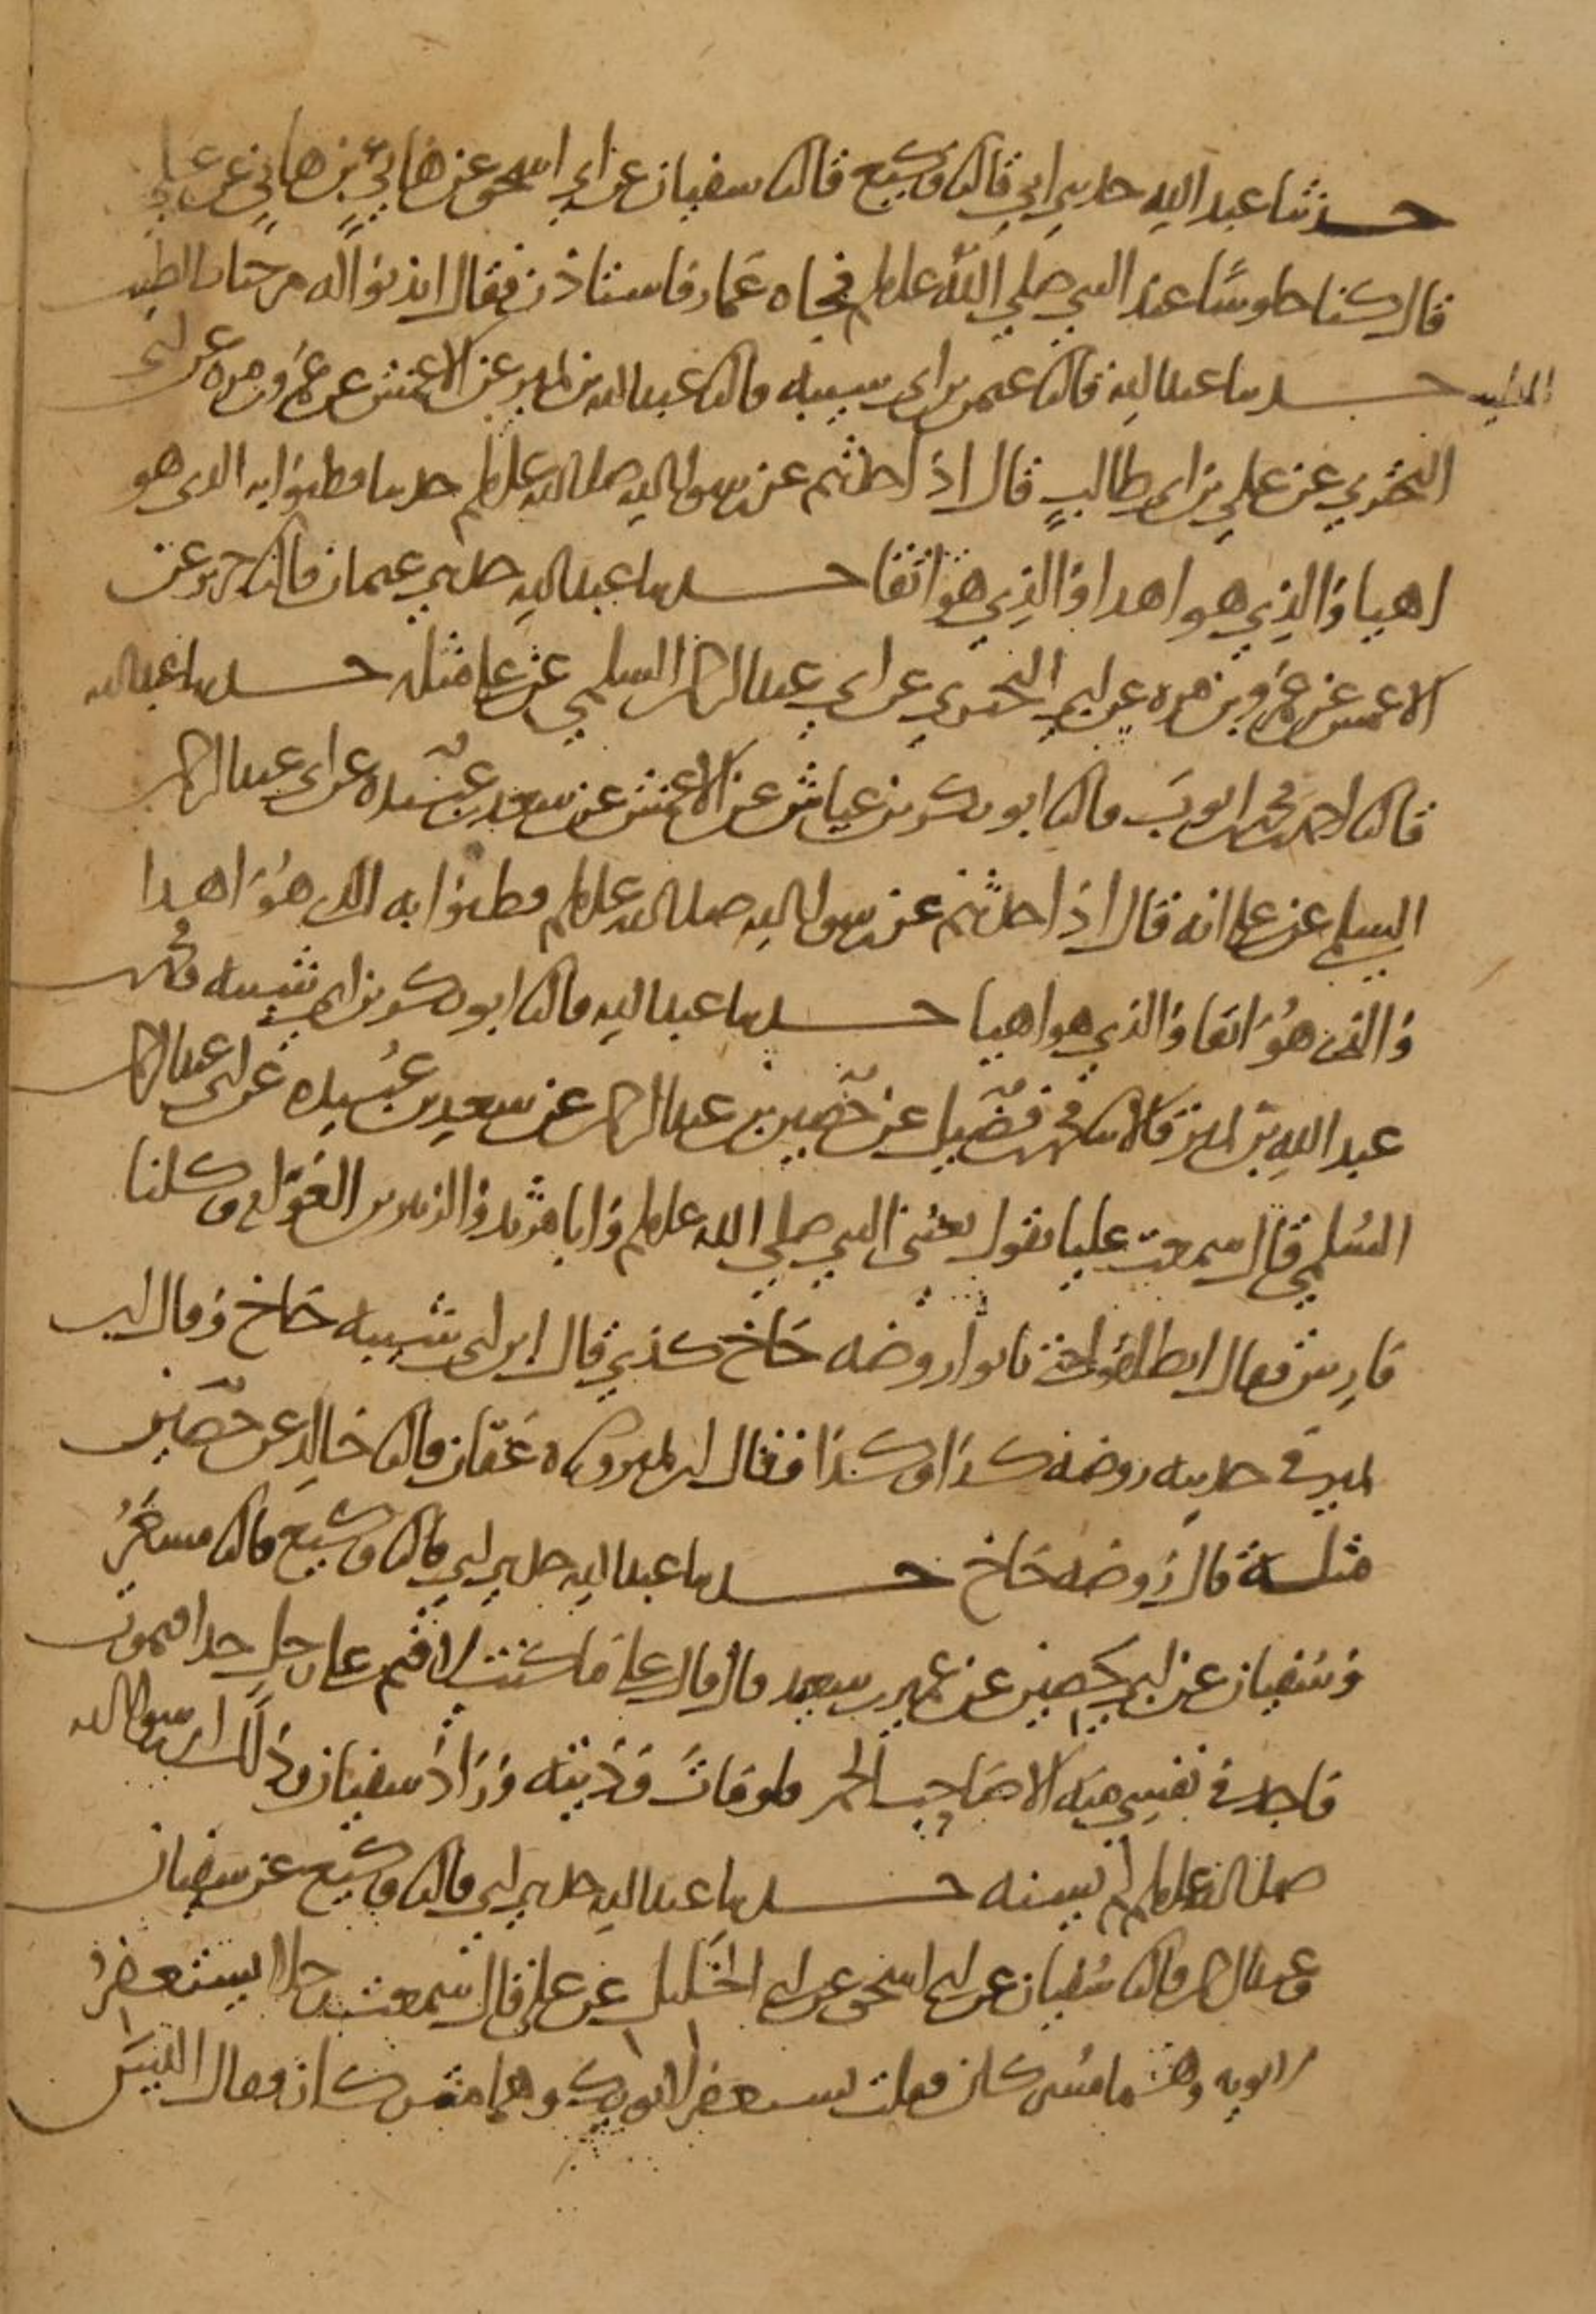 حدثنا عبد الله حدثني ابي قال نا وكيع قال نا سفيان عن ابي اسحق عن هانئ بن هانئ عن علي
قال كنا جلوسا عند النبي صلى الله عليه وسلم فجاه عمار فاستاذن فقال ائذنوا له مرحبا بالطيب
المطيب حدثنا عبد الله قال نا عثمن بن ابي شيبه قال نا عبد الله بن نمير عن الاعمش عن عمرو بن مره عن ابي
البختري عن علي بن ابي طالب قال اذا حدثتم عن رسول الله صلى الله عليه وسلم حديثا فظنوا به الذي هو
اهيا والذي هو اهدا والذي هو اتقا حدثنا عبد الله حدثني عثمان قال نا جرير عن
الاعمش عن عمرو بن مره عن ابي البختري عن ابي عبد الرحمن السلمي عن علي مثله حدثنا عبد الله
قال نا احمد بن محمد بن ايوب قال نا ابو بكر بن عياش عن الاعمش عن سعد بن عبيده عن ابي عبد الرحمن
السلمي عن علي انه قال اذا حدثتم عن رسول الله صلى الله عليه وسلم فظنوا به الذي هو اهدا
والذي هو اتقا والذي هو اهيا حدثنا عبد الله قال نا ابو بكر بن ابي شيبه ومحمد بن
عبد الله بن نمير قالا نا محمد بن فضيل عن حصين بن عبد الرحمن عن سعد بن عبيده عن ابي عبد الرحمن
السلمي قال سمعت عليا يقول بعثني النبي صلى الله عليه وسلم وابا مرثد والزبير بن العوام وكلنا
فارس فقال انطلقوا حتى تاتوا روضه خاخ كذي قال ابن ابي شيبه خاخ وقال ابن
نمير في حديثه روضه كذا وكذا فقال ابن نمير وحدثناه عفان قال نا خالد عن حصين
مثله قال روضه خاخ حدثنا عبد الله حدثني ابي قال نا وكيع قال نا مسعر
وسفيان عن ابي حصين عن عمير بن سعيد قال قال علي ما كنت لاقيم على رجل حدا فيموت
فاجد في نفسي منه الا صاحب الخمر فلو مات وديته وزاد سفيان وذلك ان رسول الله
صلى الله عليه وسلم لم يسنه حدثنا عبد الله حدثني ابي قال نا وكيع عن سفيان
وعبد الرحمن قال نا سفيان عن ابي اسحق عن ابي الخليل عن علي قال سمعت رجلا يستغفر
لابويه وهما مشركان فقلت تستغفر لابويك وهما مشركان فقال اليس